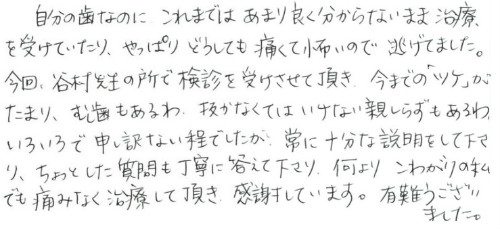 自分の歯なのに これまでは あまり良く分からないまま 治療
を受けていたり、やっぱり どうしても 痛くて怖いので 逃げてました。
今回、谷村先生の所で検診を受けさせて頂き、今までの「ツケ」が
たまり、むし歯もあるわ、抜かなくてはいけない親しらずもあるわ、
いろいろで申し訳ない程でしたが、常に十分な説明をして下さ
り、ちょっとした質問も丁寧に答えて下さり、何より こわがりの私
でも痛みなく治療して頂き、感謝しています。有難うござい
ました。